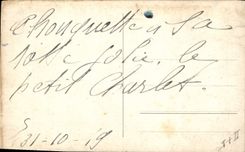 Chouquette à sa
toute jolie, le
petit Charlet.
31-10-19